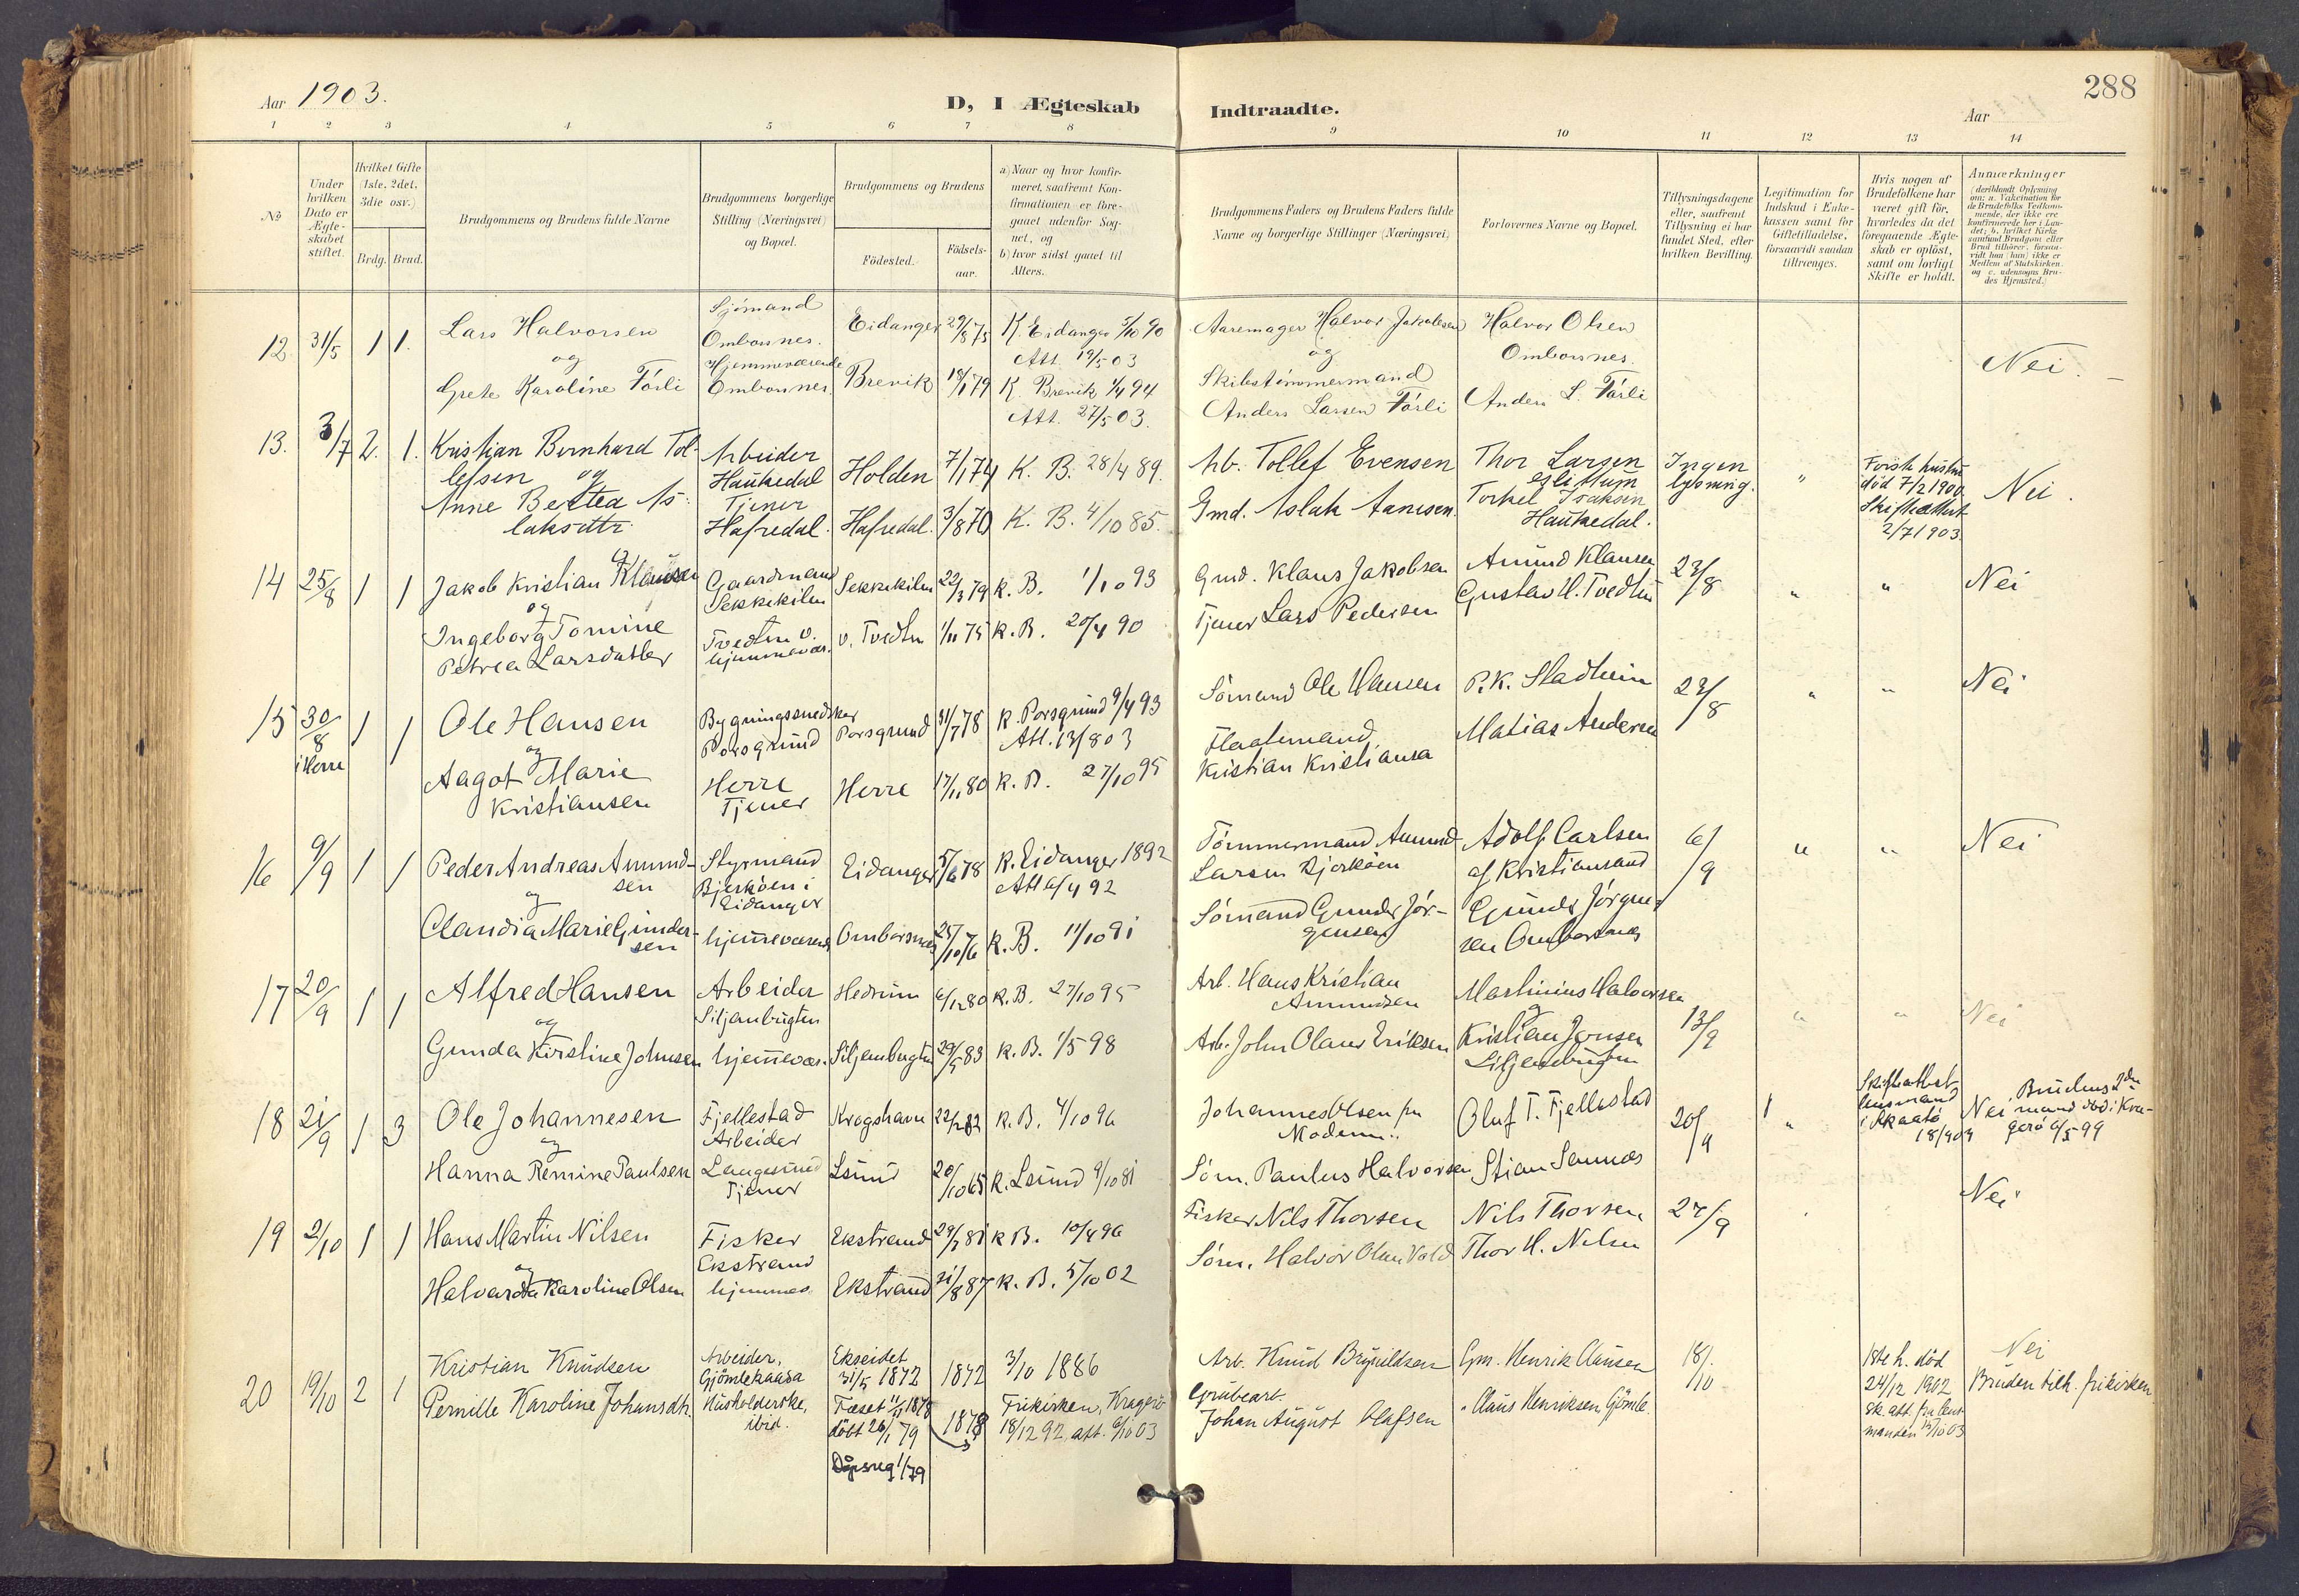 288
Aar 1903.
D, I Ægteskab Indtraadte.
Aar
1 2 3 4 5 6 7 8 9 10 11 12 13 14
No
Under hvilken Dato er Ægteskabet stiftet.
Hvilket Gifte (1ste, 2det, 3die osv.)
Brdg. Brud.
Brudgommens og Brudens fulde Navne
Brudgommens borgerlige Stilling (Næringsvei) og Bopæl.
Brudgommens og Brudens
Fødested.
Fødselsaar.
a) Naar og hvor konfirmeret, saafremt Konfirmationen er foregaaet udenfor Sognet, og
b) hvor sidst gaaet til Alters.
Brudgommens Faders og Brudens Faders fulde Navne og borgerlige Stillinger (Næringsvei)
Forlovernes Navne og Bopæl.
Tillysningsdagene eller, saafremt Tillysning ei har fundet Sted, efter hvilken Bevilling.
Legitimation for Indskud i Enkekassen samt for Giftetilladelse, forsaavidt saadan tiltrænges.
Hvis nogen af Brudefolkene har været gift før, hvorledes da det foregaaende Ægteskab er opløst, samt om lovligt Skifte er holdt.
Anmærkninger (deriblandt Oplysning om: a. Vakcination for de Brudefolks Vedkommende, der ikke ere konfirmerede her i Landet; b. hvilket Kirkesamfund Brudgom eller Brud tilhører, forsaavidt han (hun) ikke er Medlem af Statskirken, og c. udensogns Brudes Hjemsted.)
12. 31/5 1 1. Lars Halvorsen Sjømand Ombornnes. Eidanger 29/8 75 K. Eidanger 5/10 90 Att. 19/5 03 Aaremager Halvor Jakobsen Halvor Olsen Ombornnes. Nei.
og
Grete Karoline Førli Hjemmeværende Ombornnes Brevik 18/1 79 K. Brevik 1/4 94 Att. 27/5 03. Skibstømmermand Anders Larsen Førli Anders L. Førli
13. 3/7 2. 1. Kristian Bernhard Tollefsen Arbeider Haukedal Holden 7/1 74 K. B. 28/4 89. Arb. Tollef Evensen Thor Larsen Ingen lysning. " Første hustru død 7/2 1900. Skifteattest 2/7 1903. Nei.
og
Anne Bertea Aslaksdtr Tjener Hafredal. Hafredal. 3/8 70 K. B. 4/10 85. Gmd. Aslak Aanesen. Torkel Isaksen Haukedal.
14 25/8 1 1 Jakob Kristian Klausen Gaardmand Sekkekilen Sekkekilen 22/3 79 K. B. 1/10 93 Gmd. Klaus Jakobsen Amund Klausen 23/8 " " Nei
og
Ingeborg Tomine Petrea Larsdatter Tvedten v. hjemmevær. v. Tvedtn 1/11 75 K. B. 20/4 90 Tjener Lars Pedersen Gustav H. Tvedten
15 30/8 i Herre 1 1 Ole Hansen Bygningssnedker Porsgrund Porsgrund 31/7 78 K. Porsgrund 9/4 93 Att. 13/8 03 Sømand Ole Hansen P. K. Stadheim 23/8 " " Nei
og
Aagot Marie Kristiansen Herre Tjener Herre 17/11 80 K. B. 27/10 95 Flaatemand Kristian Kristiansen Matias Andersen
16 9/9 1 1 Peder Andreas Amundsen Styrmand Bjerkøen i Eidanger Eidanger 5/6 78 K. Eidanger 1892 Att 6/4 92 Tømmermand Amund Larsen Bjerkøen Adolf Carlsen af Kristiansand 6/9 " " Nei
og
Claudia Marie Gundersen hjemmeværende Ombornæs 25/10 76 K. B. 11/10 91 Sømand Gunder Jørgensen Gunder Jørgensen Ombornæs
17 20/9 1 1 Alfred Hansen Arbeider Siljanbugten Hedrum 6/12 80 K. B. 27/10 95 Arb. Hans Kristian Amundsen Martinius Halvorsen 13/9 " " Nei
og
Gunda Kirstine Johnsen hjemmevær. Siljanbugten 29/5 83 K. B. 1/5 98 Arb. John Olaus Eriksen Kristian Jonsen Siljanbugten
18 21/9 1 3 Ole Johannesen Fjellestad Arbeider Krogshavn 22/2 82 K. B. 4/10 96 Johannes Olsen fra Modum Oluf T. Fjellestad 20/9 " Skifteattest lensmand i Skaatø 18/9 03 Nei Brudens 2den mand død i Kragerø 6/5 99
og
Hanna Remine Paulsen Langesund Tjener Lsund 20/10 65 K. Lsund 9/10 81 Søm. Paulus Halvorsen Stian Sannæs
19 2/10 1 1 Hans Martin Nilsen Fisker Ekstrand Ekstrand 29/7 81 K. B. 10/4 96 Fisker Nils Thorsen Nils Thorsen 27/9 Nei
og
Halvarda Karoline Olsen hjemmev. Ekstrand 21/8 87 K. B. 5/10 02 Søm. Halvor Olsen Vold Thor H. Nilsen
20 19/10 2 1 Kristian Knudsen Arbeider, Gjømlekaasa Ekseidet 31/5 1872 1872 3/10 1886 Arb. Knud Brynildsen Gm. Henrik Clausen 18/10 1ste h. død 24/12 1902 sk. att. fra lensmanden 15/10 03 Nei Bruden tilh. frikirken
Pernille Karoline Johansdtr. Husholderske, ibid. Fæset 11/11 1878 døbt 26/1 79 1878 Frikirken, Kragerø 18/12 92, att. 6/10 03 Grubearb. Johan August Olafsen " Claus Henriksen Gjømle.
Dåpsreg 1/79